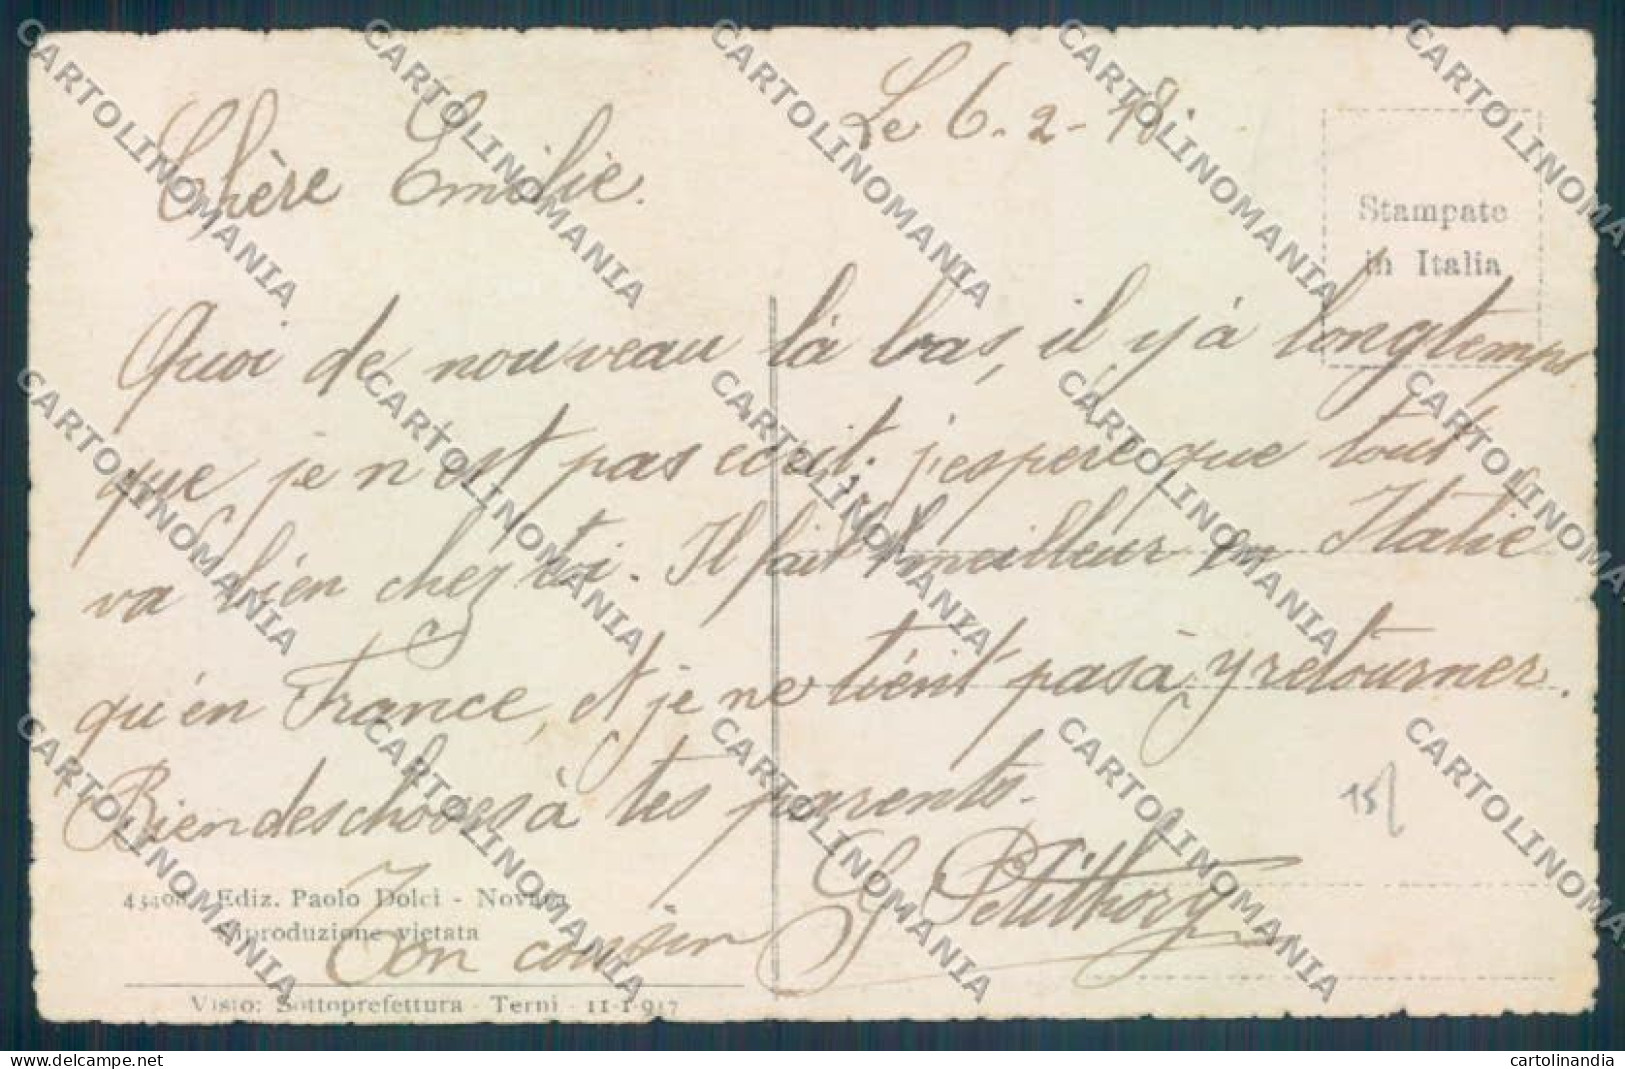 Le 6-2-18.
Chère Emilie.
Stampate
in Italia
Quoi de nouveau là bas, il y à longtemps
que je n'est pas ecrit. j'espere que tout
va bien chez toi. Il fait meilleur en Italie
qu'en France, et je ne tient pas à y retourner.
Bien des choses à tes parents.
Ton cousin G Petithory
15/
43408 Ediz. Paolo Dolci - Novara
Riproduzione vietata
Visto: Sottoprefettura - Terni - 11-1-917
CARTOLINOMANIA
cartolinandia